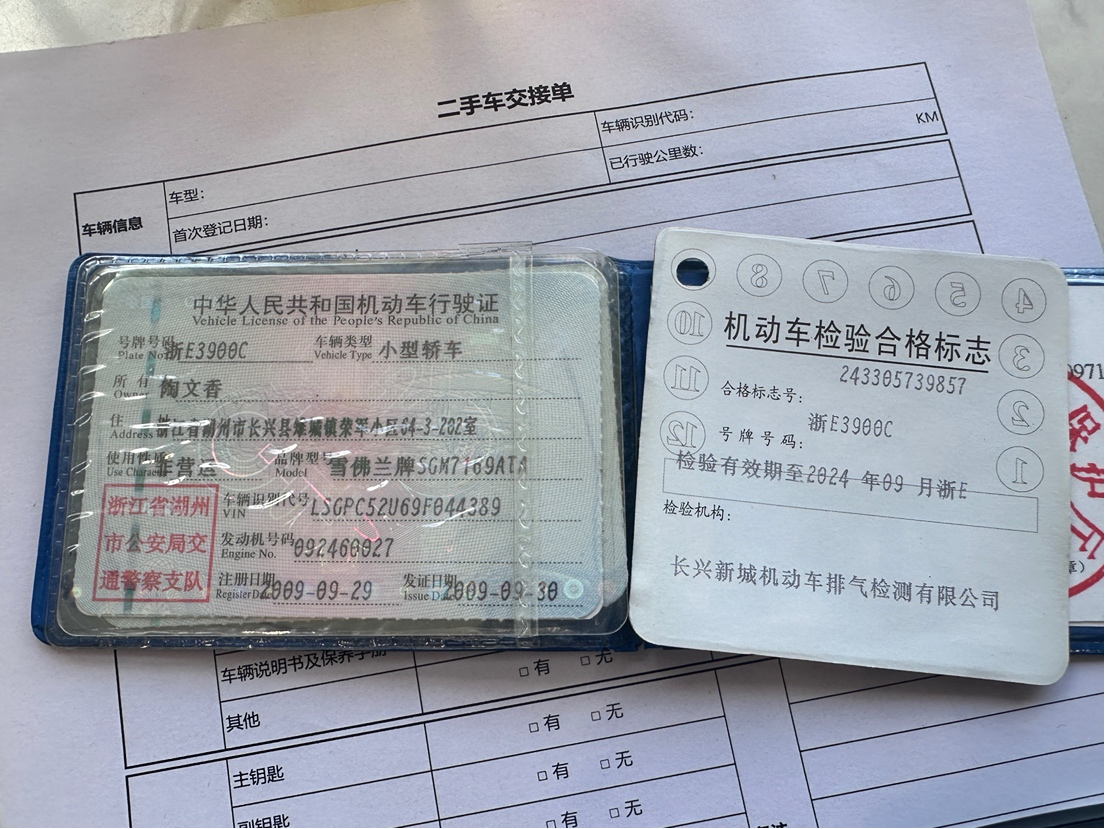 二手车交接单
车辆信息
车型:
车辆识别代码:
首次登记日期:
已行驶公里数:
KM
中华人民共和国机动车行驶证
Vehicle License of the People's Republic of China
号牌号码 浙E3900C 车辆类型 小型轿车
Plate No. Vehicle Type
所有人 陶文香
Owner
住址 浙江省湖州市长兴县雉城镇荣军小区04-3-202室
Address
使用性质 非营运 品牌型号 雪佛兰牌SGM7169ATA
Use Character Model
浙江省湖州
市公安局交
通警察支队
车辆识别代号 LSGPC52U69F044389
VIN
发动机号码 092460027
Engine No.
注册日期 2009-09-29 发证日期 2009-09-30
Register Date Issue Date
8 7 6 5 4
10 3
11 2
12 1
机动车检验合格标志
合格标志号: 243305739857
号牌号码: 浙E3900C
检验有效期至2024 年09 月浙E
检验机构:
长兴新城机动车排气检测有限公司
0971
保护
车辆说明书及保养手册 □有 □无
其他 □有 □无
主钥匙 □有 □无
副钥匙 □有 □无